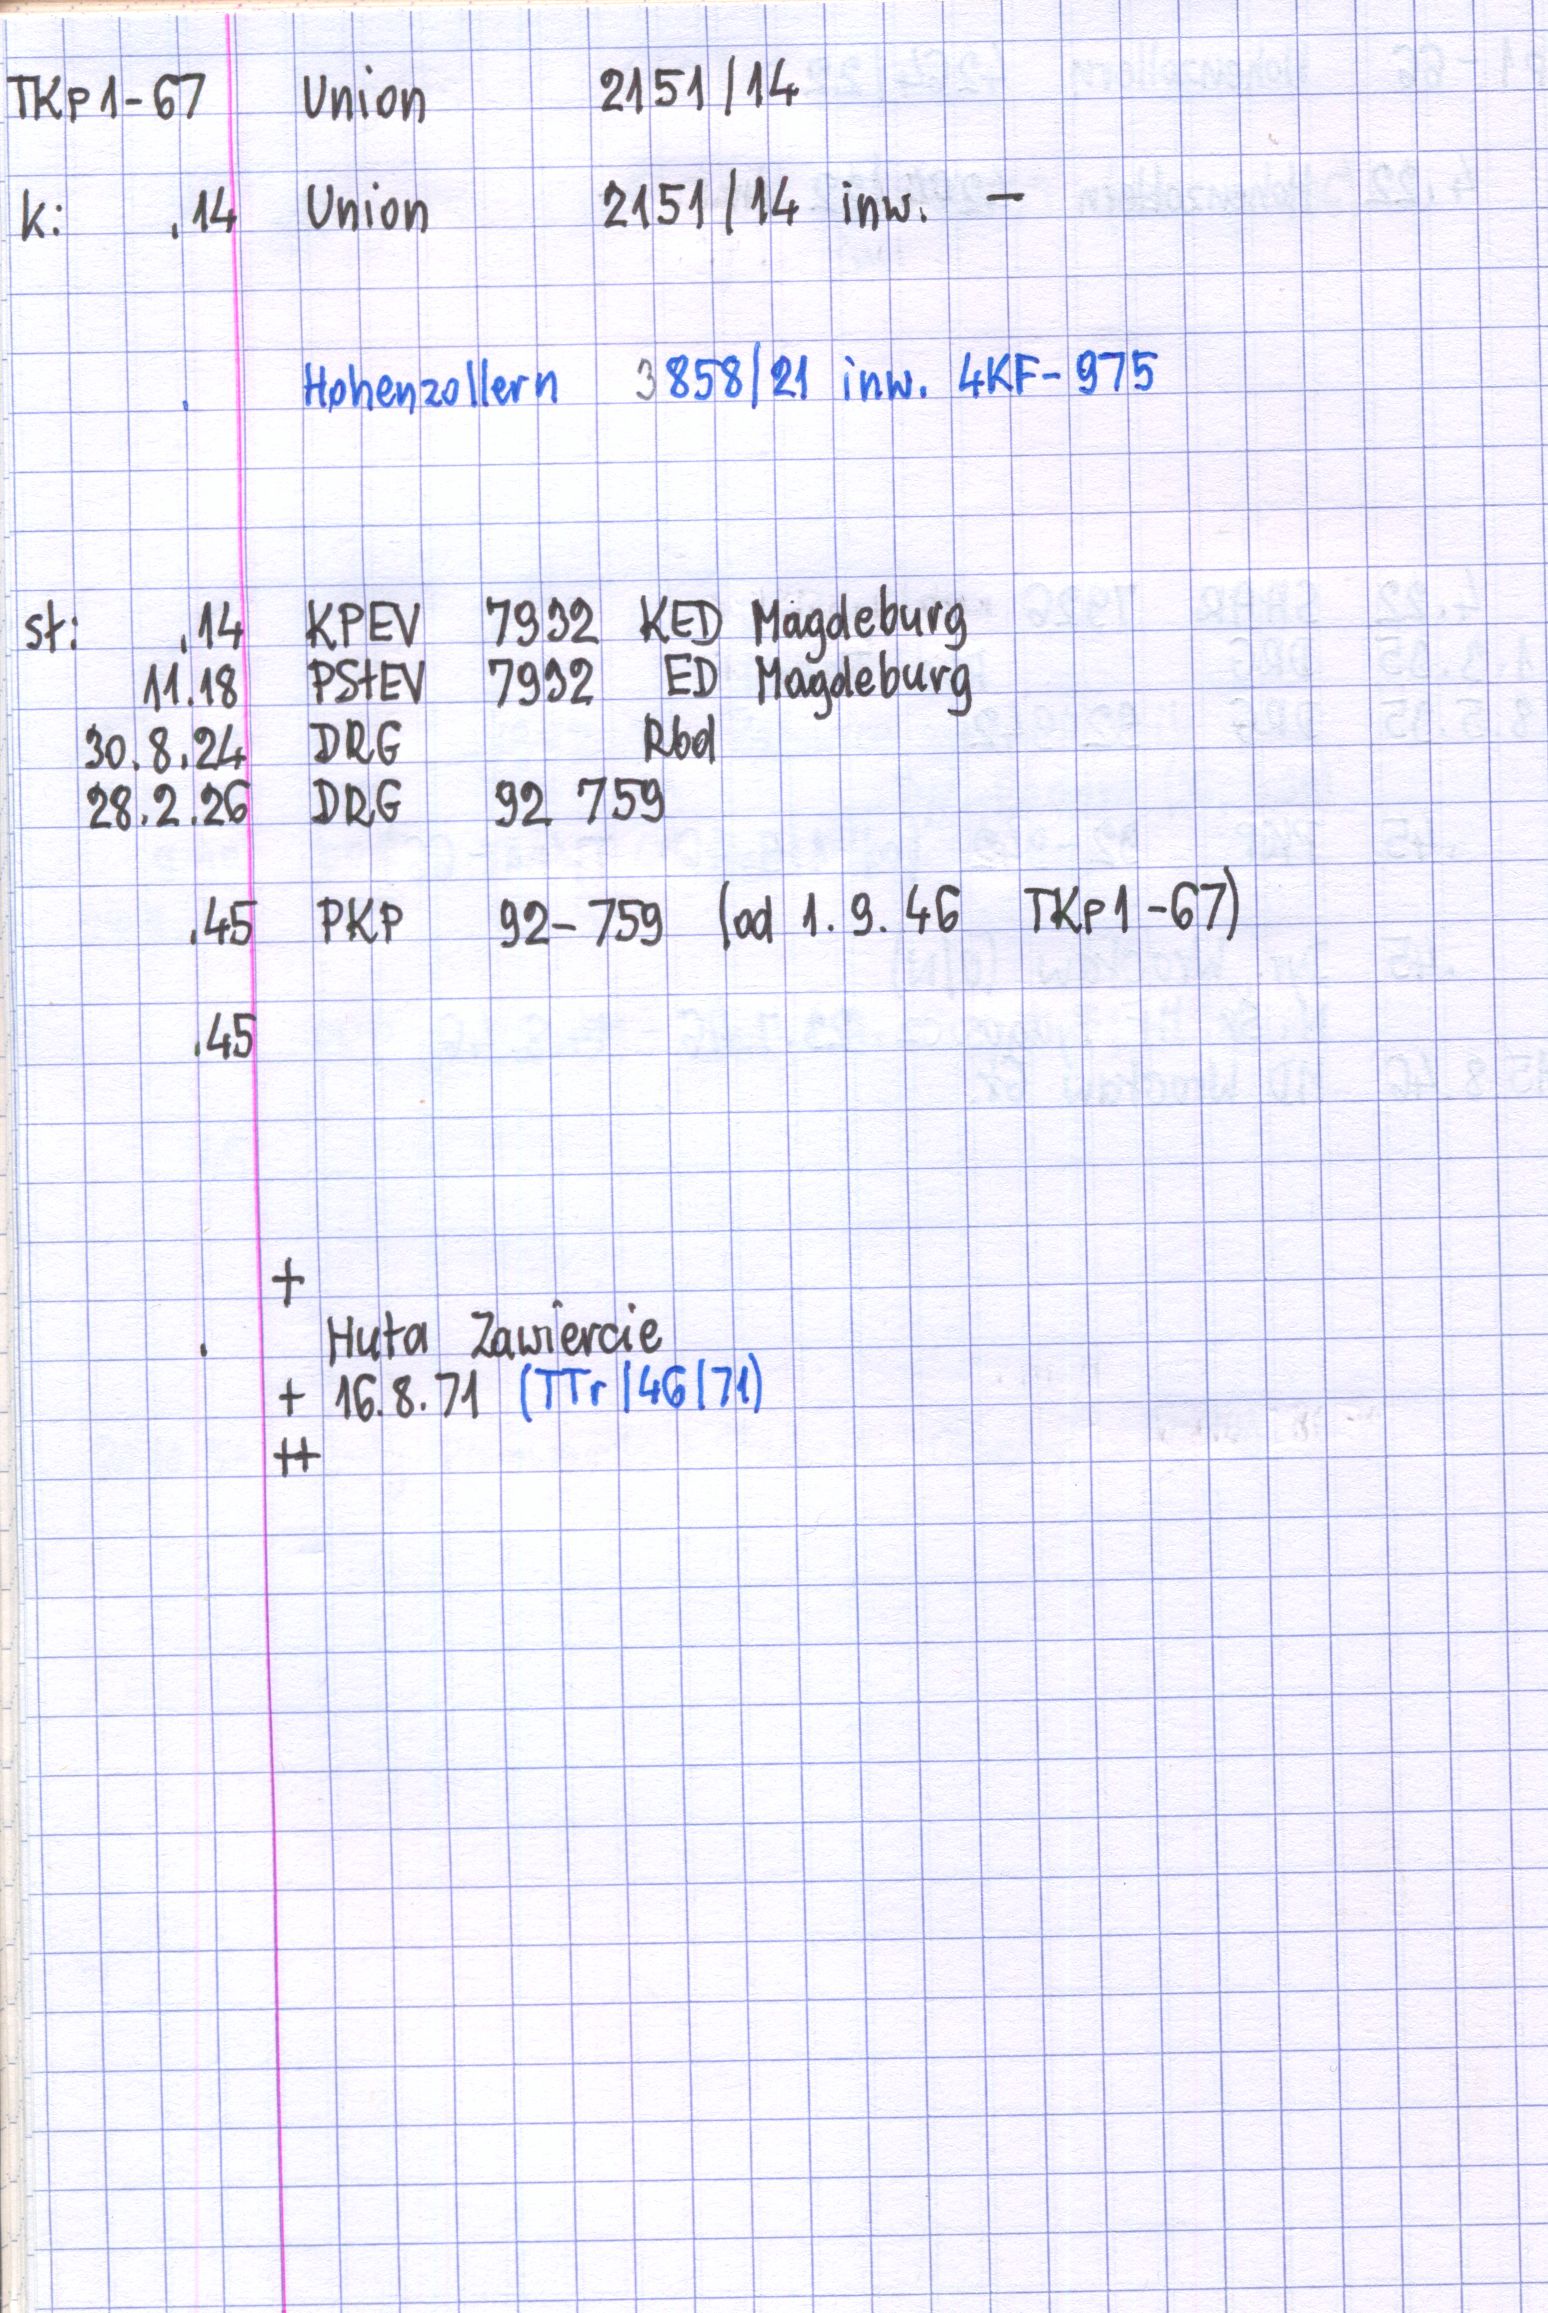 TKp1-67 Union 2151/14
k: .14 Union 2151/14 inw. —
. Hohenzollern 3858/21 inw. 4KF-975
st: .14 KPEV 7932 KED Magdeburg
11.18 PStEV 7932 ED Magdeburg
30.8.24 DRG Rbd
28.2.26 DRG 92 759
.45 PKP 92-759 (od 1.9.46 TKp1-67)
.45
+
. Huta Zawiercie
+ 16.8.71 (TTr/46/71)
++